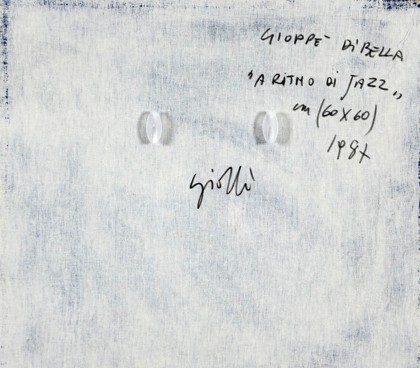 GIOPPE' DI BELLA
"A RITMO DI JAZZ"
cm (60X60)
1987